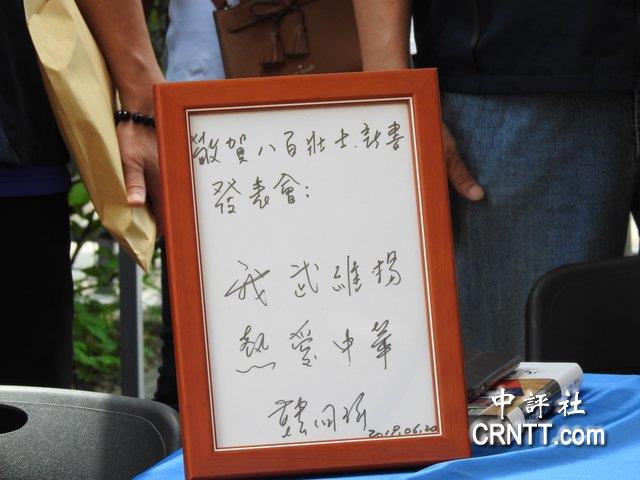 敬賀八百壯士新書
發表會：
我武維揚
熱愛中華
2018.06.20
中評社
CRNTT.com